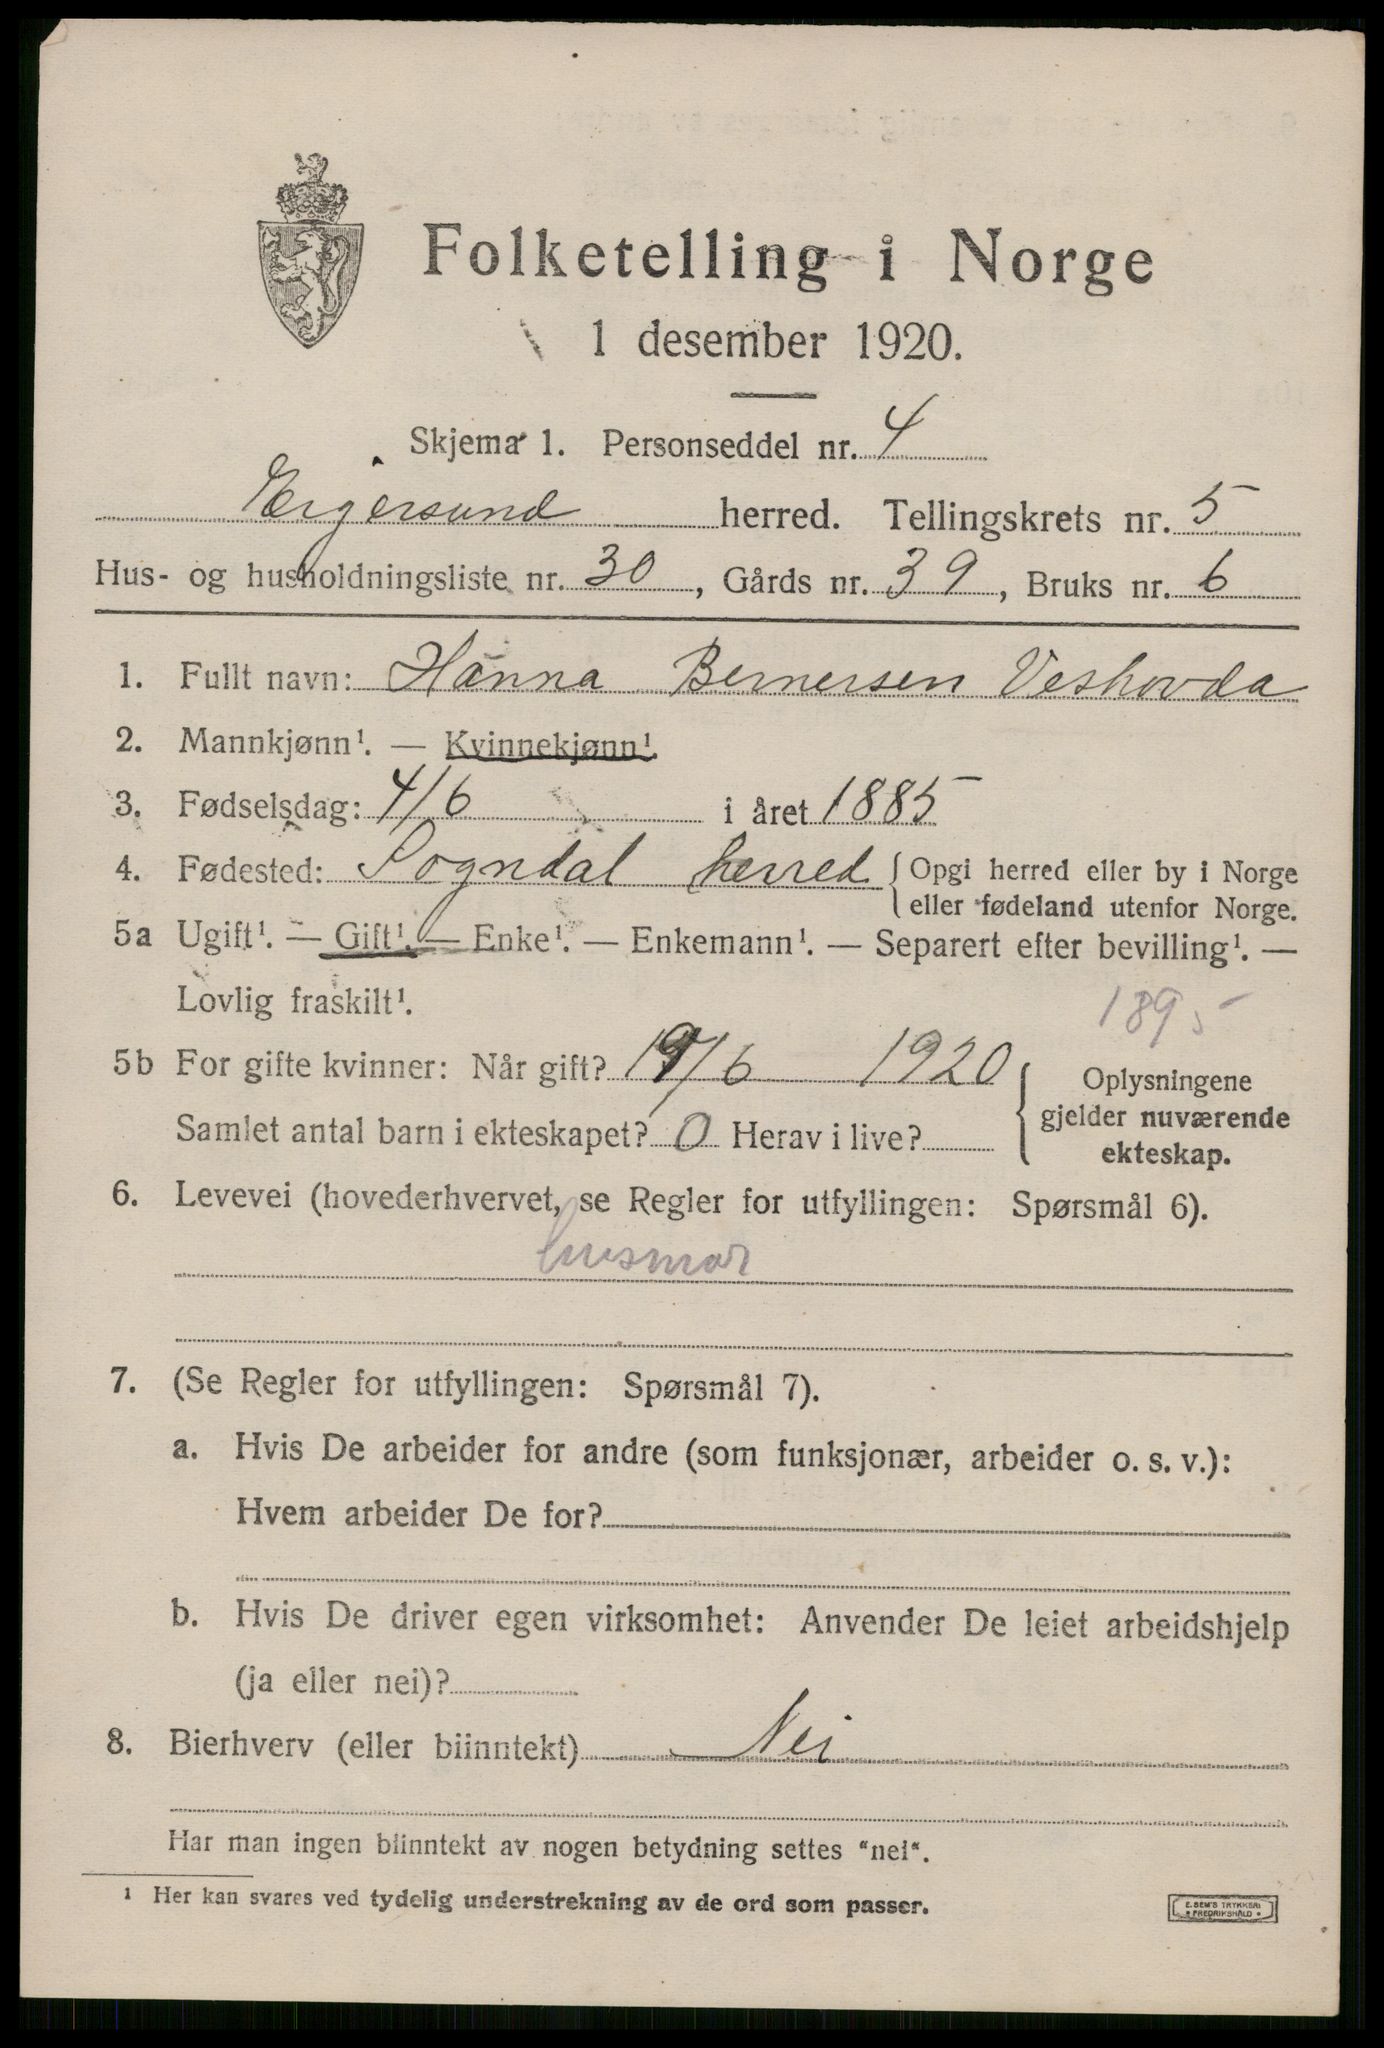 Folketelling i Norge
1 desember 1920.
Skjema 1. Personseddel nr. 4
Egersund herred. Tellingskrets nr. 5
Hus- og husholdningsliste nr. 30, Gårds nr. 39, Bruks nr. 6
1. Fullt navn: Hanna Bernersen Veshovda
2. Mannkjønn¹. — Kvinnekjønn¹.
3. Fødselsdag: 4/6 i året 1885
4. Fødested: Sogndal herred { Opgi herred eller by i Norge
eller fødeland utenfor Norge.
5a Ugift¹. — Gift¹. — Enke¹. — Enkemann¹. — Separert efter bevilling¹. —
Lovlig fraskilt¹.
1895
5b For gifte kvinner: Når gift? 19/6 1920
Samlet antal barn i ekteskapet? 0 Herav i live?
Oplysningene
gjelder nuværende
ekteskap.
6. Levevei (hovederhvervet, se Regler for utfyllingen: Spørsmål 6).
husmor
7. (Se Regler for utfyllingen: Spørsmål 7).
a. Hvis De arbeider for andre (som funksjonær, arbeider o. s. v.):
Hvem arbeider De for?
b. Hvis De driver egen virksomhet: Anvender De leiet arbeidshjelp
(ja eller nei)?
8. Bierhverv (eller biinntekt) Nei
Har man ingen biinntekt av nogen betydning settes "nei".
¹ Her kan svares ved tydelig understrekning av de ord som passer.
E. SEM'S TRYKKERI
• FREDRIKSHALD •